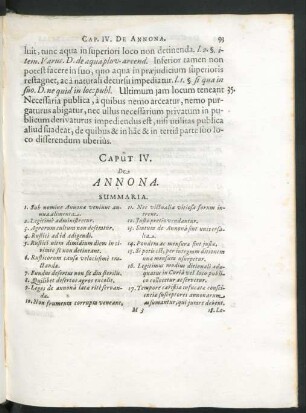 CAP. IV. DE ANNONA. 93
luit, tunc aqua in superiori loco non detinenda. l. 2. §.
item. Varus. D. de aqua pluv. arcend. Inferior tamen non
potest facere in suo, quo aqua in præjudicium superioris
restagnet, ac à naturali decursu impediatur. l. 1. § si qua in
suo. D. ne quid in loc. publ. Ultimum jam locum teneant 35.
Necessaria publica, à quibus nemo arceatur, nemo pur-
gaturus abigatur, nec ullus necessarium privatum in pu-
blicum derivaturus impediendus est, nisi utilitas publica
aliud suadeat, de quibus & in hâc & in tertiâ parte suo lo-
co differendum uberius.
CAPUT IV.
DE
ANNONA.
SUMMARIA.
1. Sub nomine Annonæ veniunt an-
nua alimenta.
2. Legitimè administretur.
3. Agrorum cultura non desertetur.
4. Rustici ad id adigendi.
5. Rustici ultra dimidium diem in ci-
vitate se non detineant.
6. Rusticorum causa velocissimè tra-
ctanda.
7. Fundus desertus non sit diu sterilis.
8. Quilibet desertos agros excolit.
9. Leges de annonâ latæ ritè servan-
da.
10. Non frumenta corrupta veneant,
11. Nec victualia vitiosa forum in-
trent.
12. Justo pretio vendantur.
13. Statuta de Annonâ sint universa-
lia.
14. Pondera ac mensura sint justa.
15. Si petit est, per integram diœcesin
una mensura usurpetur.
16. Legitimus modius diœcesis ad-
quatur in Curiâ vel loco publi-
co collectetur ac servetur.
17. Tempore caristia infucata consti-
tutio susceptores annonarum
assumantur, qui jurare debent.
M 3 18. La-